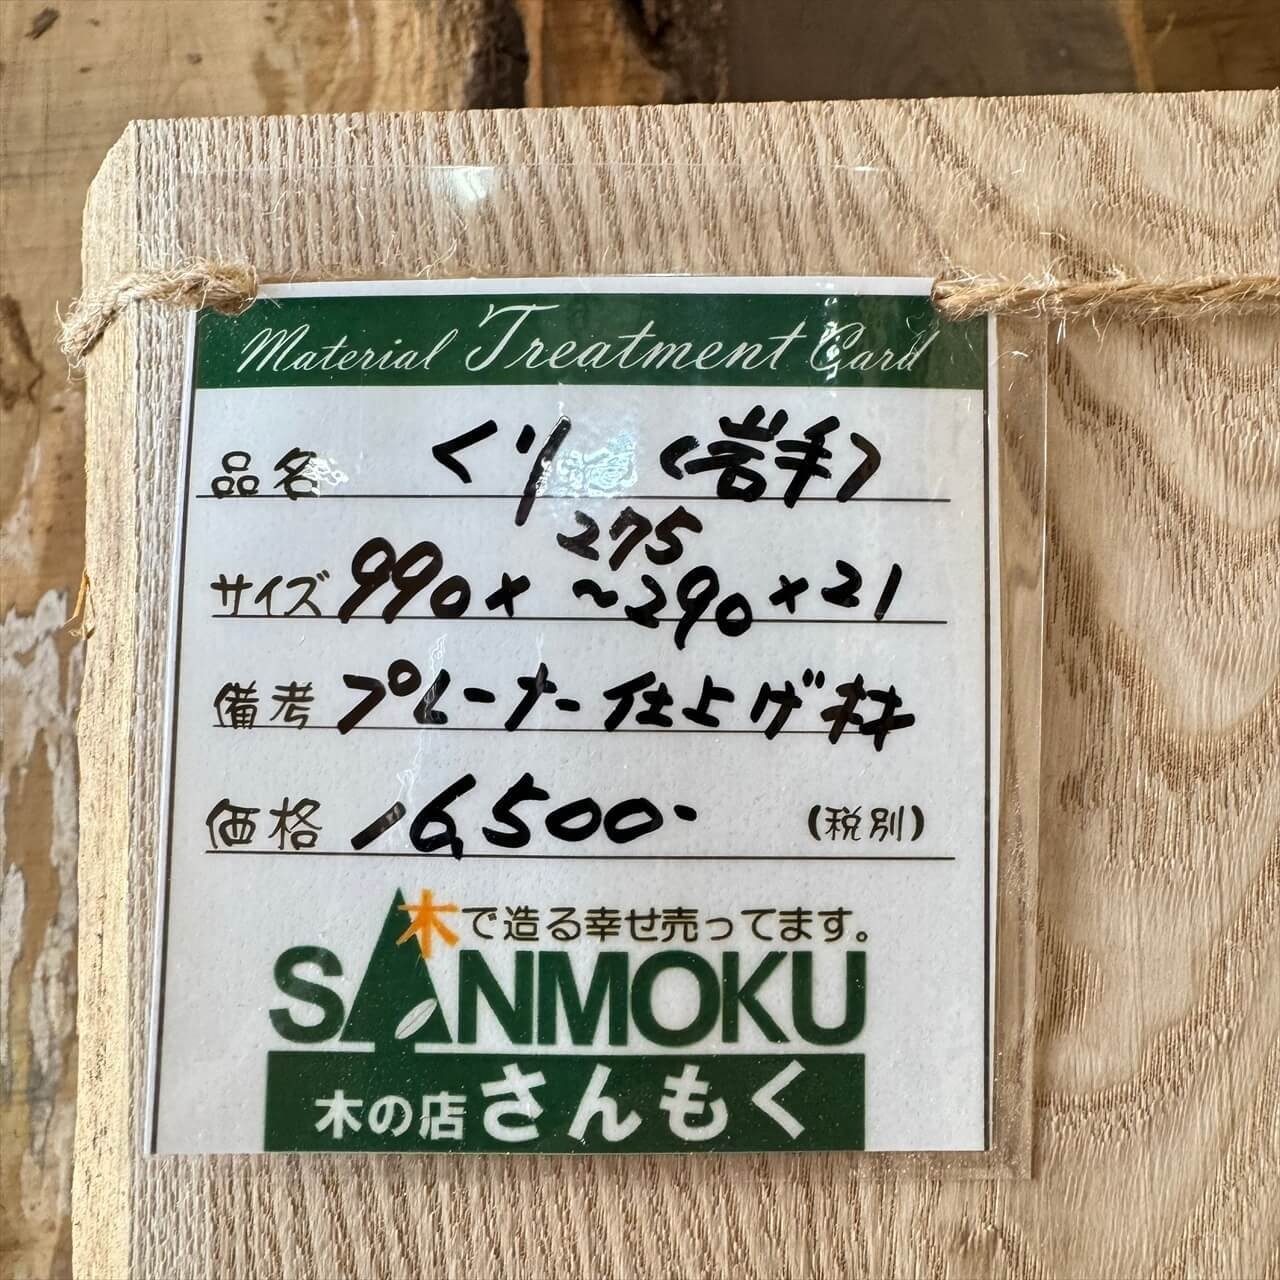 Material Treatment Card
品名 くり (岩手)
サイズ 990× 275～290 ×21
備考 プレーナー仕上げ材
価格 16,500- (税別)
木で造る幸せ売ってます。
SANMOKU
木の店 さんもく